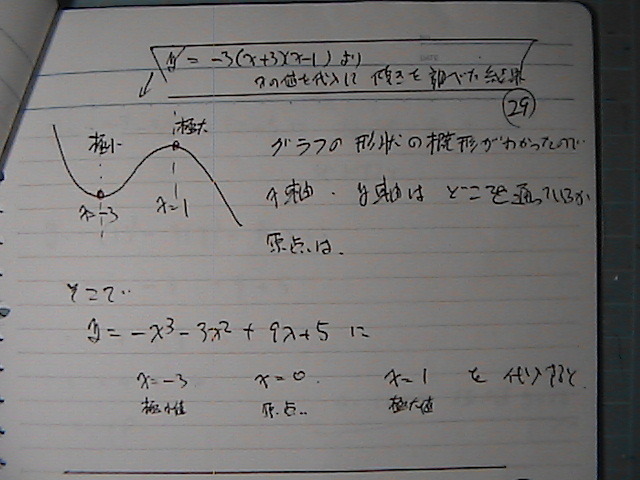 y' = -3(x+3)(x-1) より
xの値を代入し 傾きを調べた結果
29
極小
極大
x=-3
x=1
グラフの 形状の概形がわかったので
x軸・y軸は どこを通っているか
原点は、
そこで‥
y = -x³ - 3x² + 9x + 5 に
x=-3 x=0. x=1 を 代入すると
極小値 原点.. 極大値